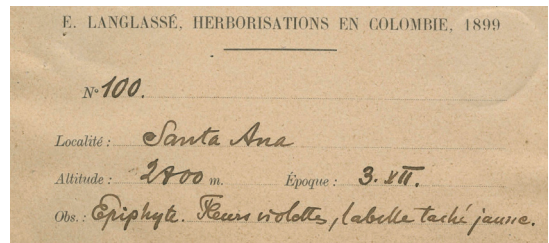 E. LANGLASSÉ, HERBORISATIONS EN COLOMBIE, 1899
N° 100.
Localité : Santa Ana
Altitude : 2800 m. Époque : 3. XII.
Obs. : Epiphyte. Fleurs violettes, labelle taché jaune.